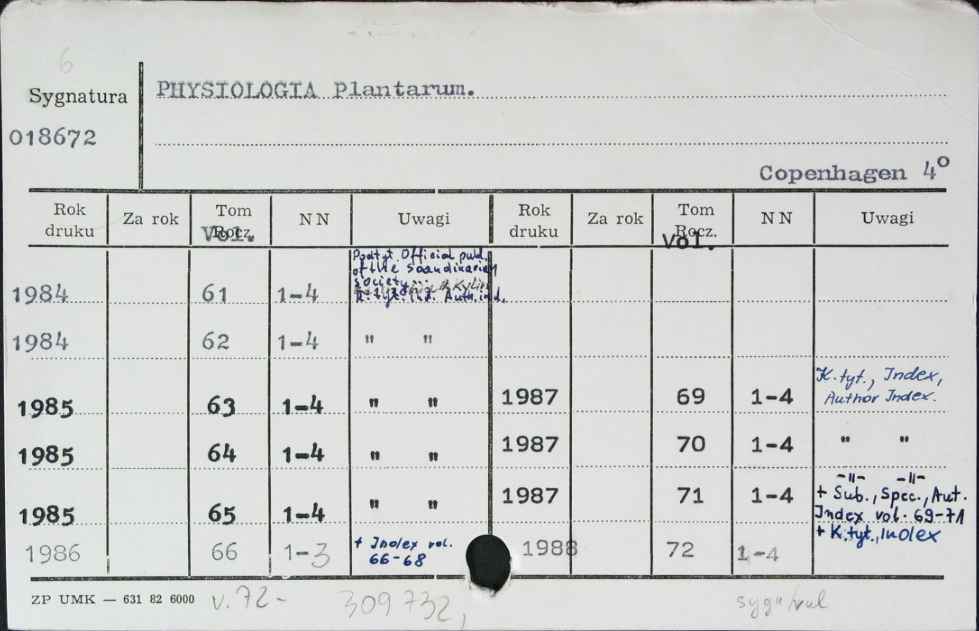 6
Sygnatura PHYSIOLOGIA Plantarum.
018672
Copenhagen 4º
Rok druku Za rok Tom Rocz. Vol. NN Uwagi Rok druku Za rok Tom Rocz. Vol. NN Uwagi
Podtyt. Official publ.
of the Scandinavian
society...
1984 61 1-4 K. tyt. Ind. Auth. ind.
1984 62 1-4 " "
K. tyt., Index,
1985 63 1-4 " " 1987 69 1-4 Author Index.
1985 64 1-4 " " 1987 70 1-4 " "
-"- -"-
1985 65 1-4 " " 1987 71 1-4 + Sub., Spec., Aut.
Index vol. 69-71
1986 66 1-3 + Index vol. 1988 72 1-4 + K. tyt., index
66-68
ZP UMK — 631 82 6000 v. 72- 309 732,